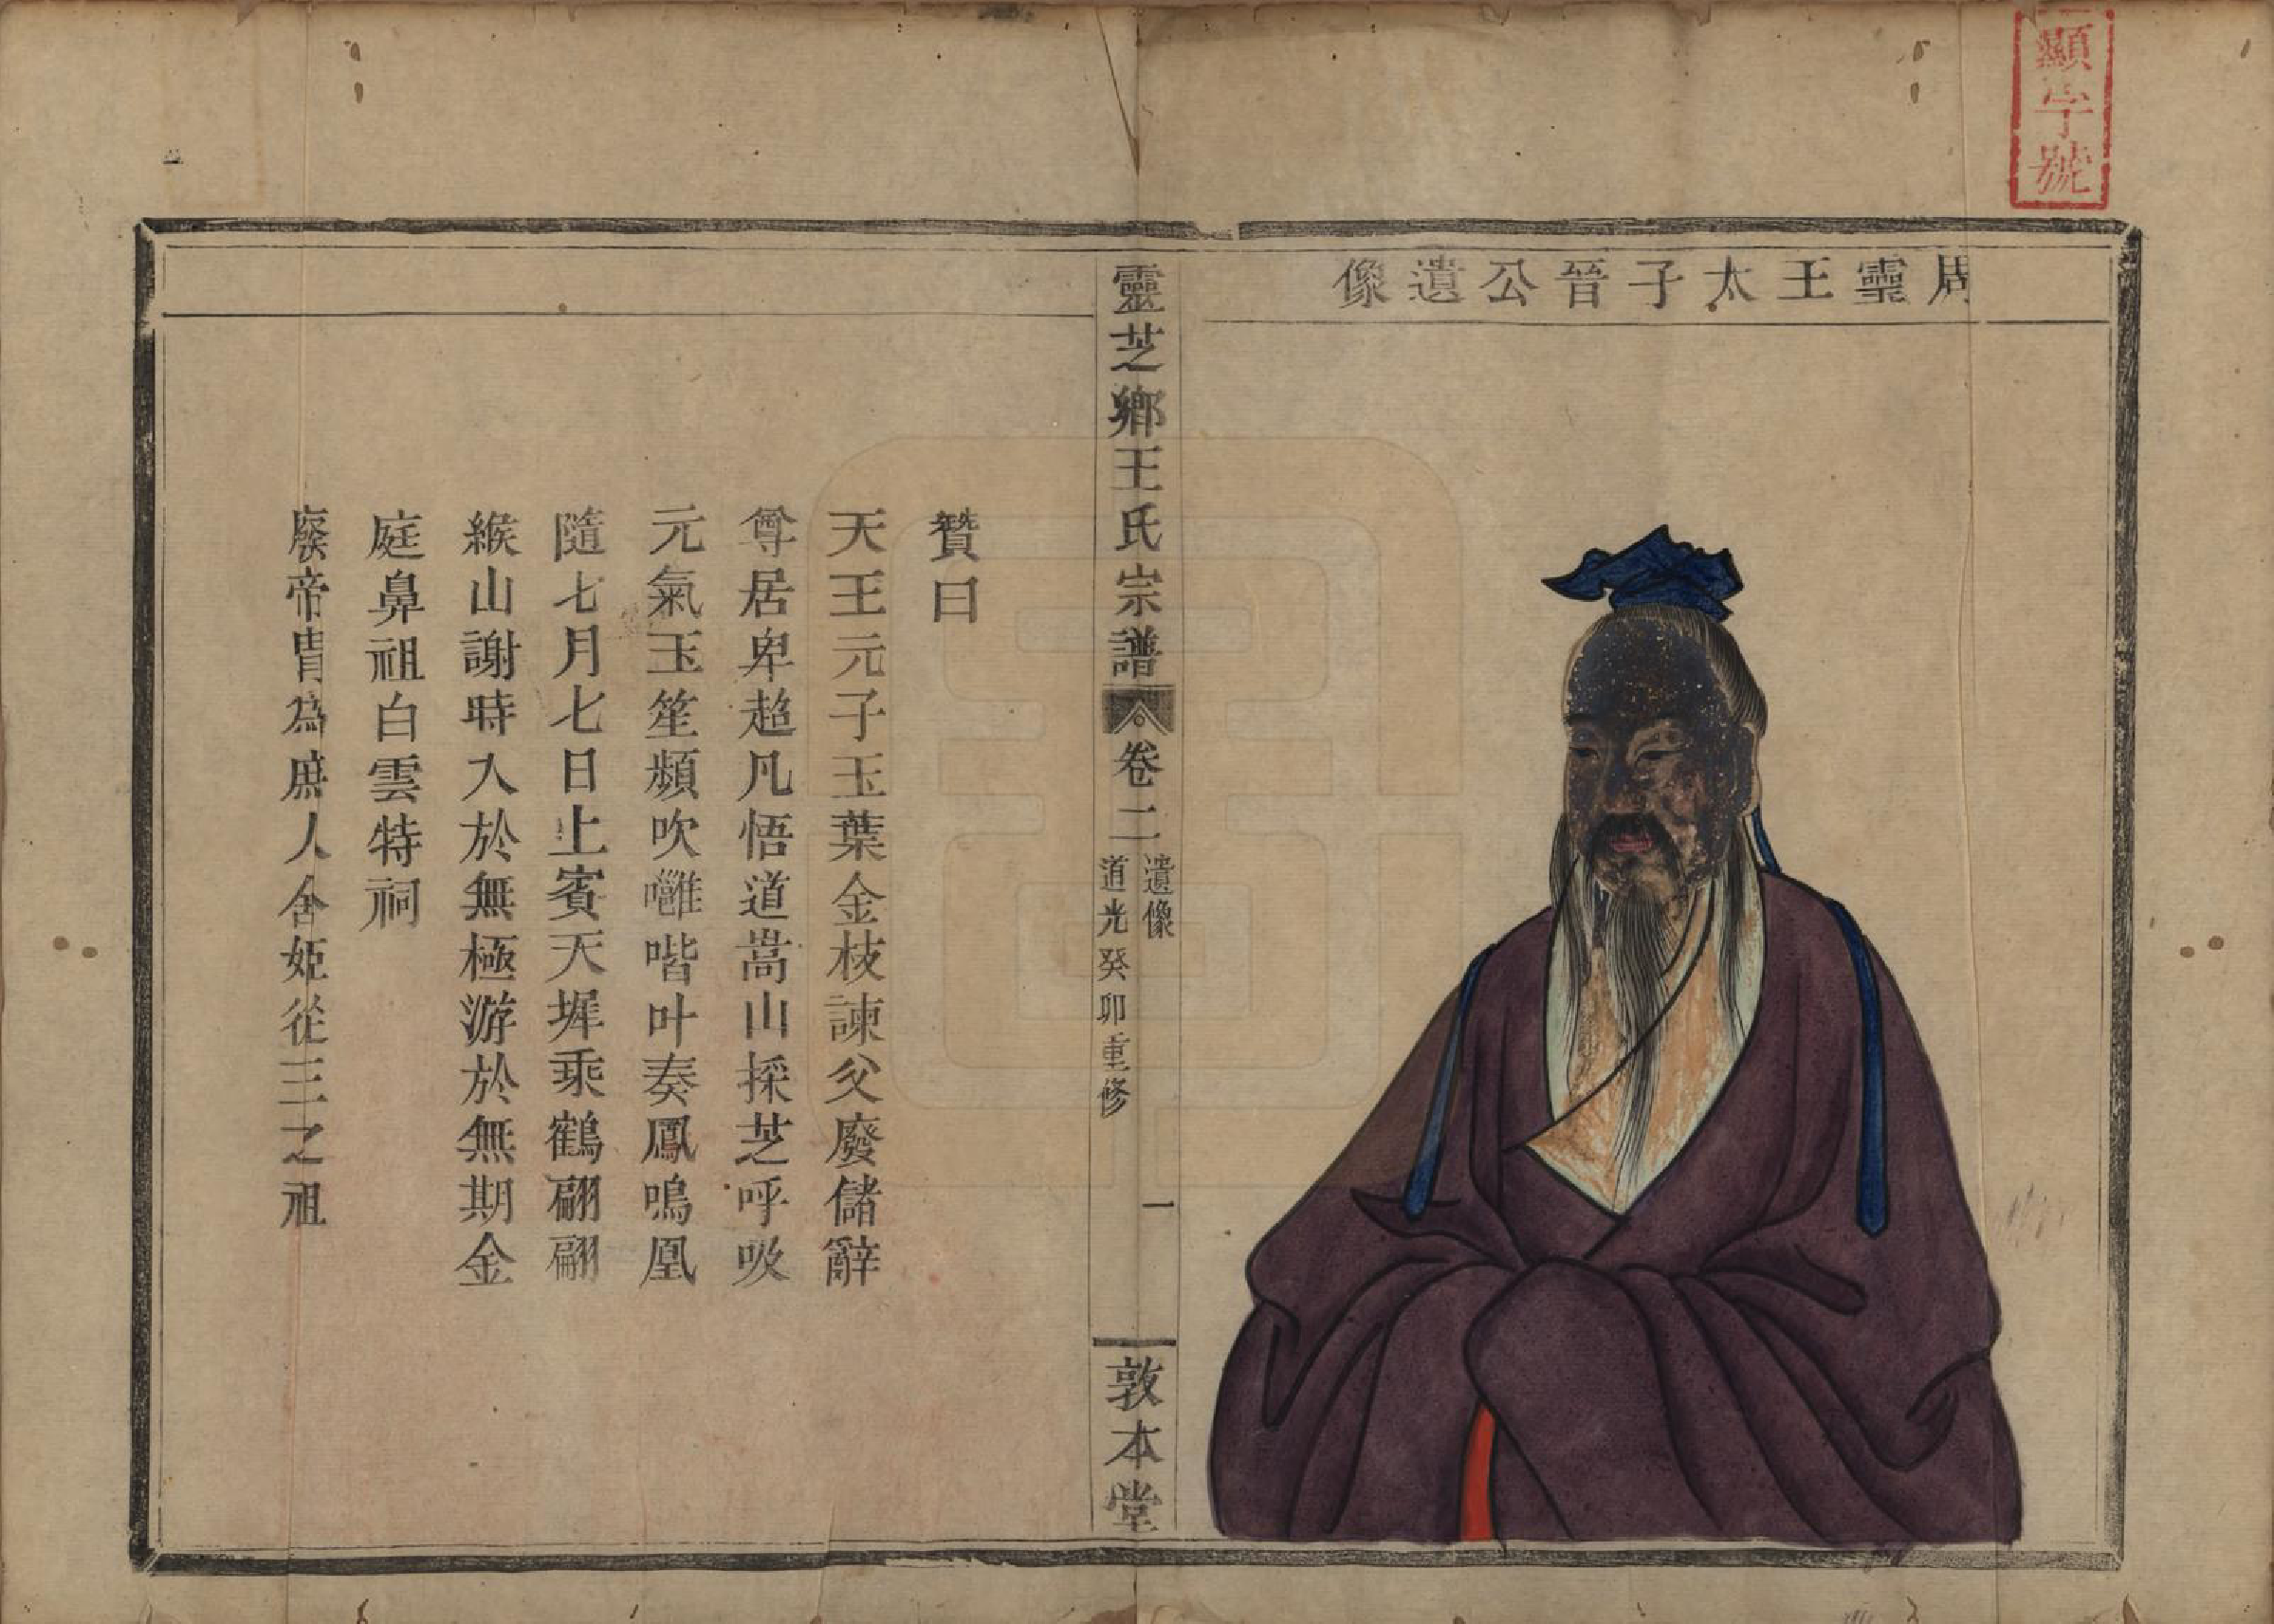 顯字號
周靈王太子晉公遺像
靈芝鄉王氏宗譜
卷二
遺像
道光癸卯重修
一
敦本堂
贊曰
天王元子玉葉金枝諫父廢儲辭
尊居卑超凡悟道嵩山採芝呼吸
元氣玉笙頻吹嗈喈叶奏鳳鳴凰
隨七月七日上賓天墀乘鶴翩翩
緱山謝時入於無極游於無期金
庭鼻祖白雲特祠
廢帝冑為庶人舍姬從王之祖